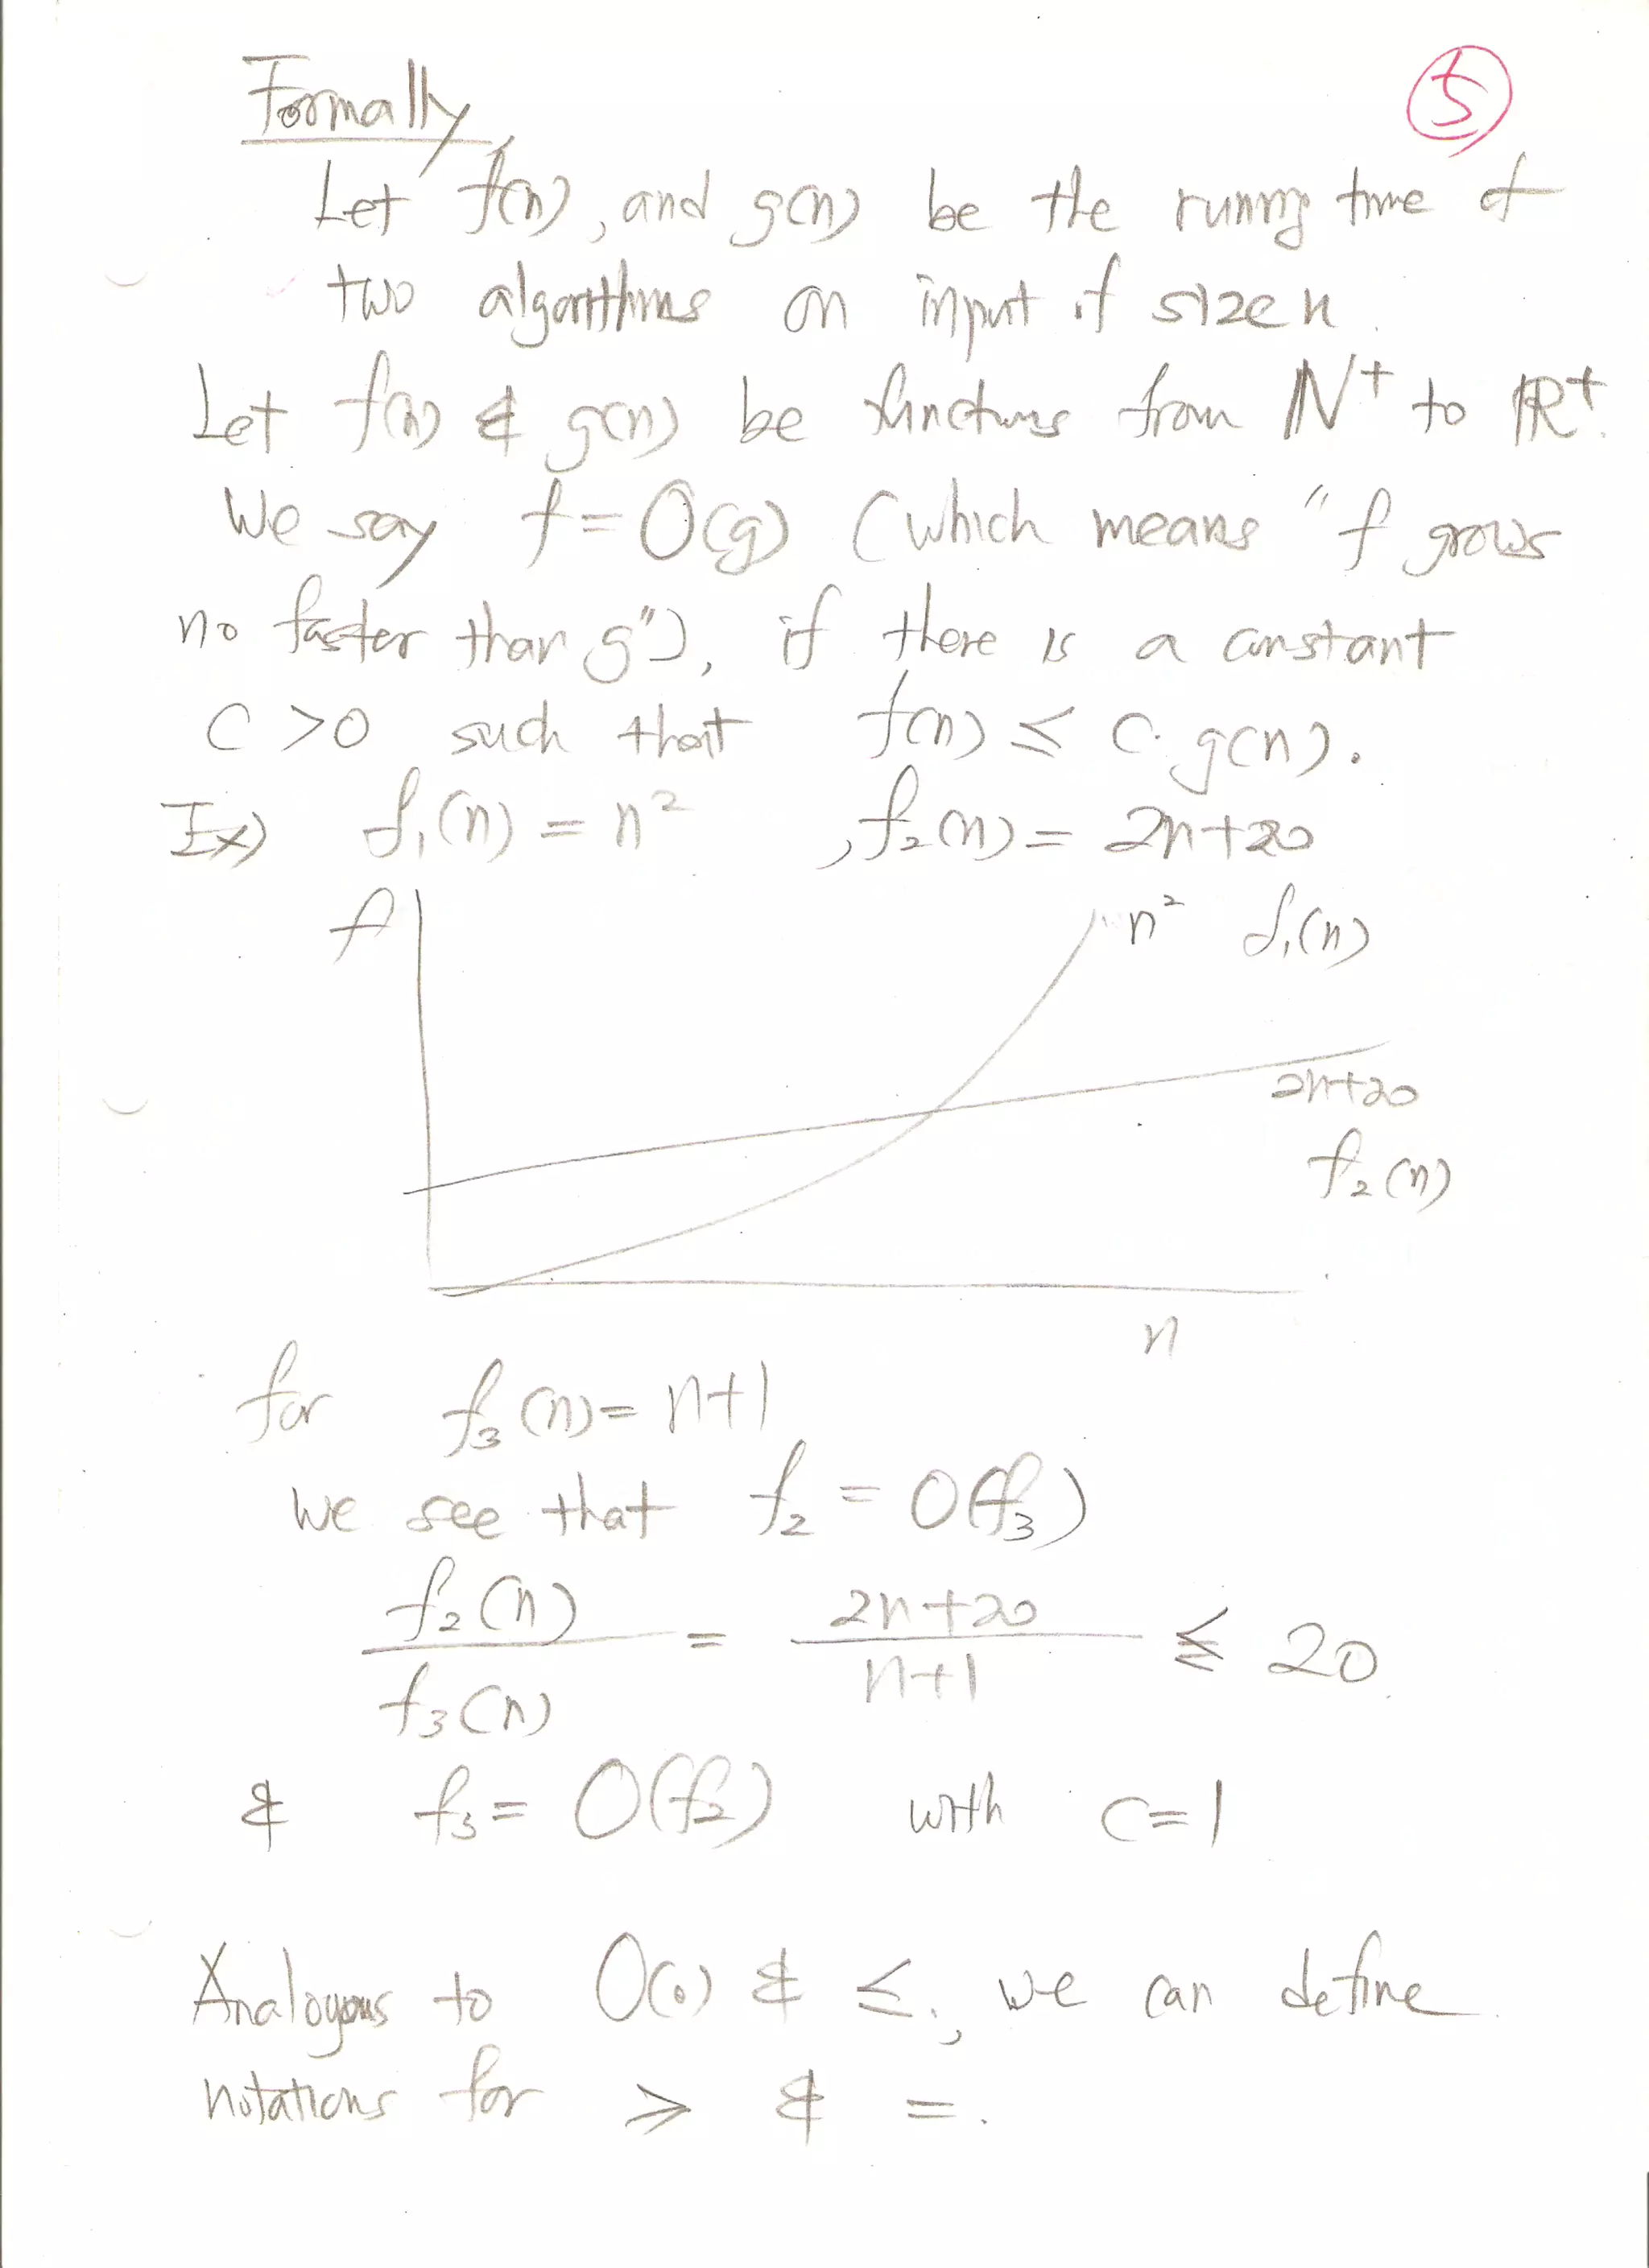 Formally,
⑤
Let f(n), and g(n) be the running time of
two algorithms on input of size n.
Let f(n) & g(n) be functions from ℕ⁺ to ℝ⁺.
We say f = O(g) (which means "f grows
no faster than g"), if there is a constant
C > 0 such that f(n) ≤ C·g(n).
Ex) f₁(n) = n² , f₂(n) = 2n+20
f
n² f₁(n)
2n+20
f₂(n)
n
for f₃(n) = n+1
we see that f₂ = O(f₃)
f₂(n)/f₃(n) = 2n+20/n+1 ≦ 20.
& f₃ = O(f₂) with C=1
Analogous to O(·) & ≤, we can define
notations for ≥ & =.